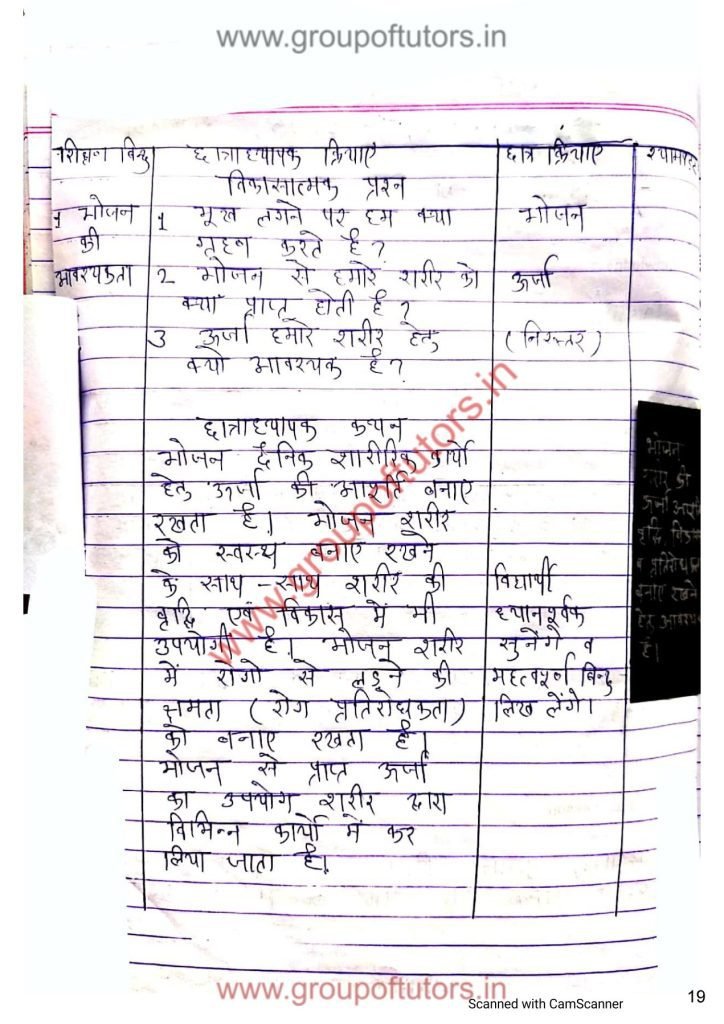 www.groupoftutors.in
शिक्षण बिन्दु छात्राध्यापक क्रियाएं छात्र क्रियाएं
विकासात्मक प्रश्न
1 भोजन 1 भूख लगने पर हम क्या भोजन
की ग्रहण करते है?
आवश्यकता 2 भोजन से हमारे शरीर को ऊर्जा
क्या प्राप्त होती है?
3 ऊर्जा हमारे शरीर हेतु (निरुत्तर)
क्यो आवश्यक है?
छात्राध्यापक कथन
भोजन दैनिक शारीरिक कार्यो
हेतु ऊर्जा की आपूर्ति बनाए
रखता है। भोजन शरीर
को स्वस्थ बनाए रखने
के साथ-साथ शरीर की विद्यार्थी
वृद्धि एवं विकास में भी ध्यानपूर्वक
उपयोगी है। भोजन शरीर सुनेंगे व
में रोगो से लड़ने की महत्वपूर्ण बिन्दु
क्षमता (रोग प्रतिरोधकता) लिख लेंगे।
को बनाए रखता है।
भोजन से प्राप्त ऊर्जा
का उपयोग शरीर द्वारा
विभिन्न कार्यो में कर
लिया जाता है।
भोजन
शरीर की
ऊर्जा
वृद्धि
व
बनाए रखने
हेतु
है।
www.groupoftutors.in
www.groupoftutors.in
Scanned with CamScanner
19